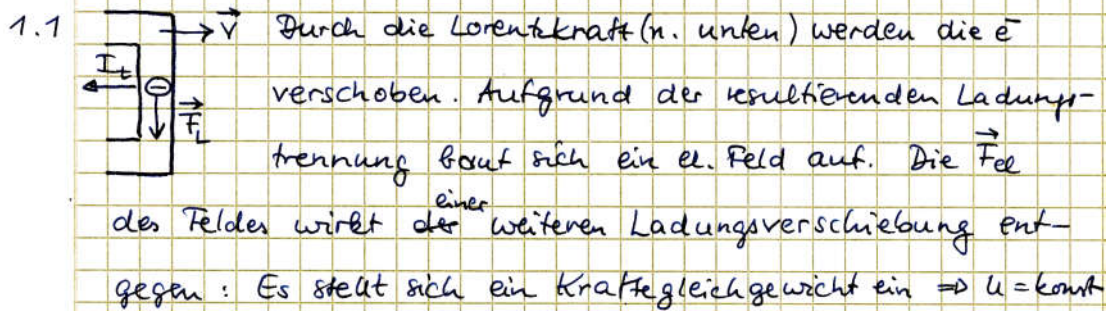 1.1 → v⃗ Durch die Lorentzkraft (n. unten) werden die e⁻
I_t ⊖ F⃗_L verschoben. Aufgrund der resultierenden Ladungs-
trennung baut sich ein el. Feld auf. Die F⃗_el
des Feldes wirkt einer weiteren Ladungsverschiebung ent-
gegen : Es stellt sich ein Kräftegleichgewicht ein ⇒ U = konst